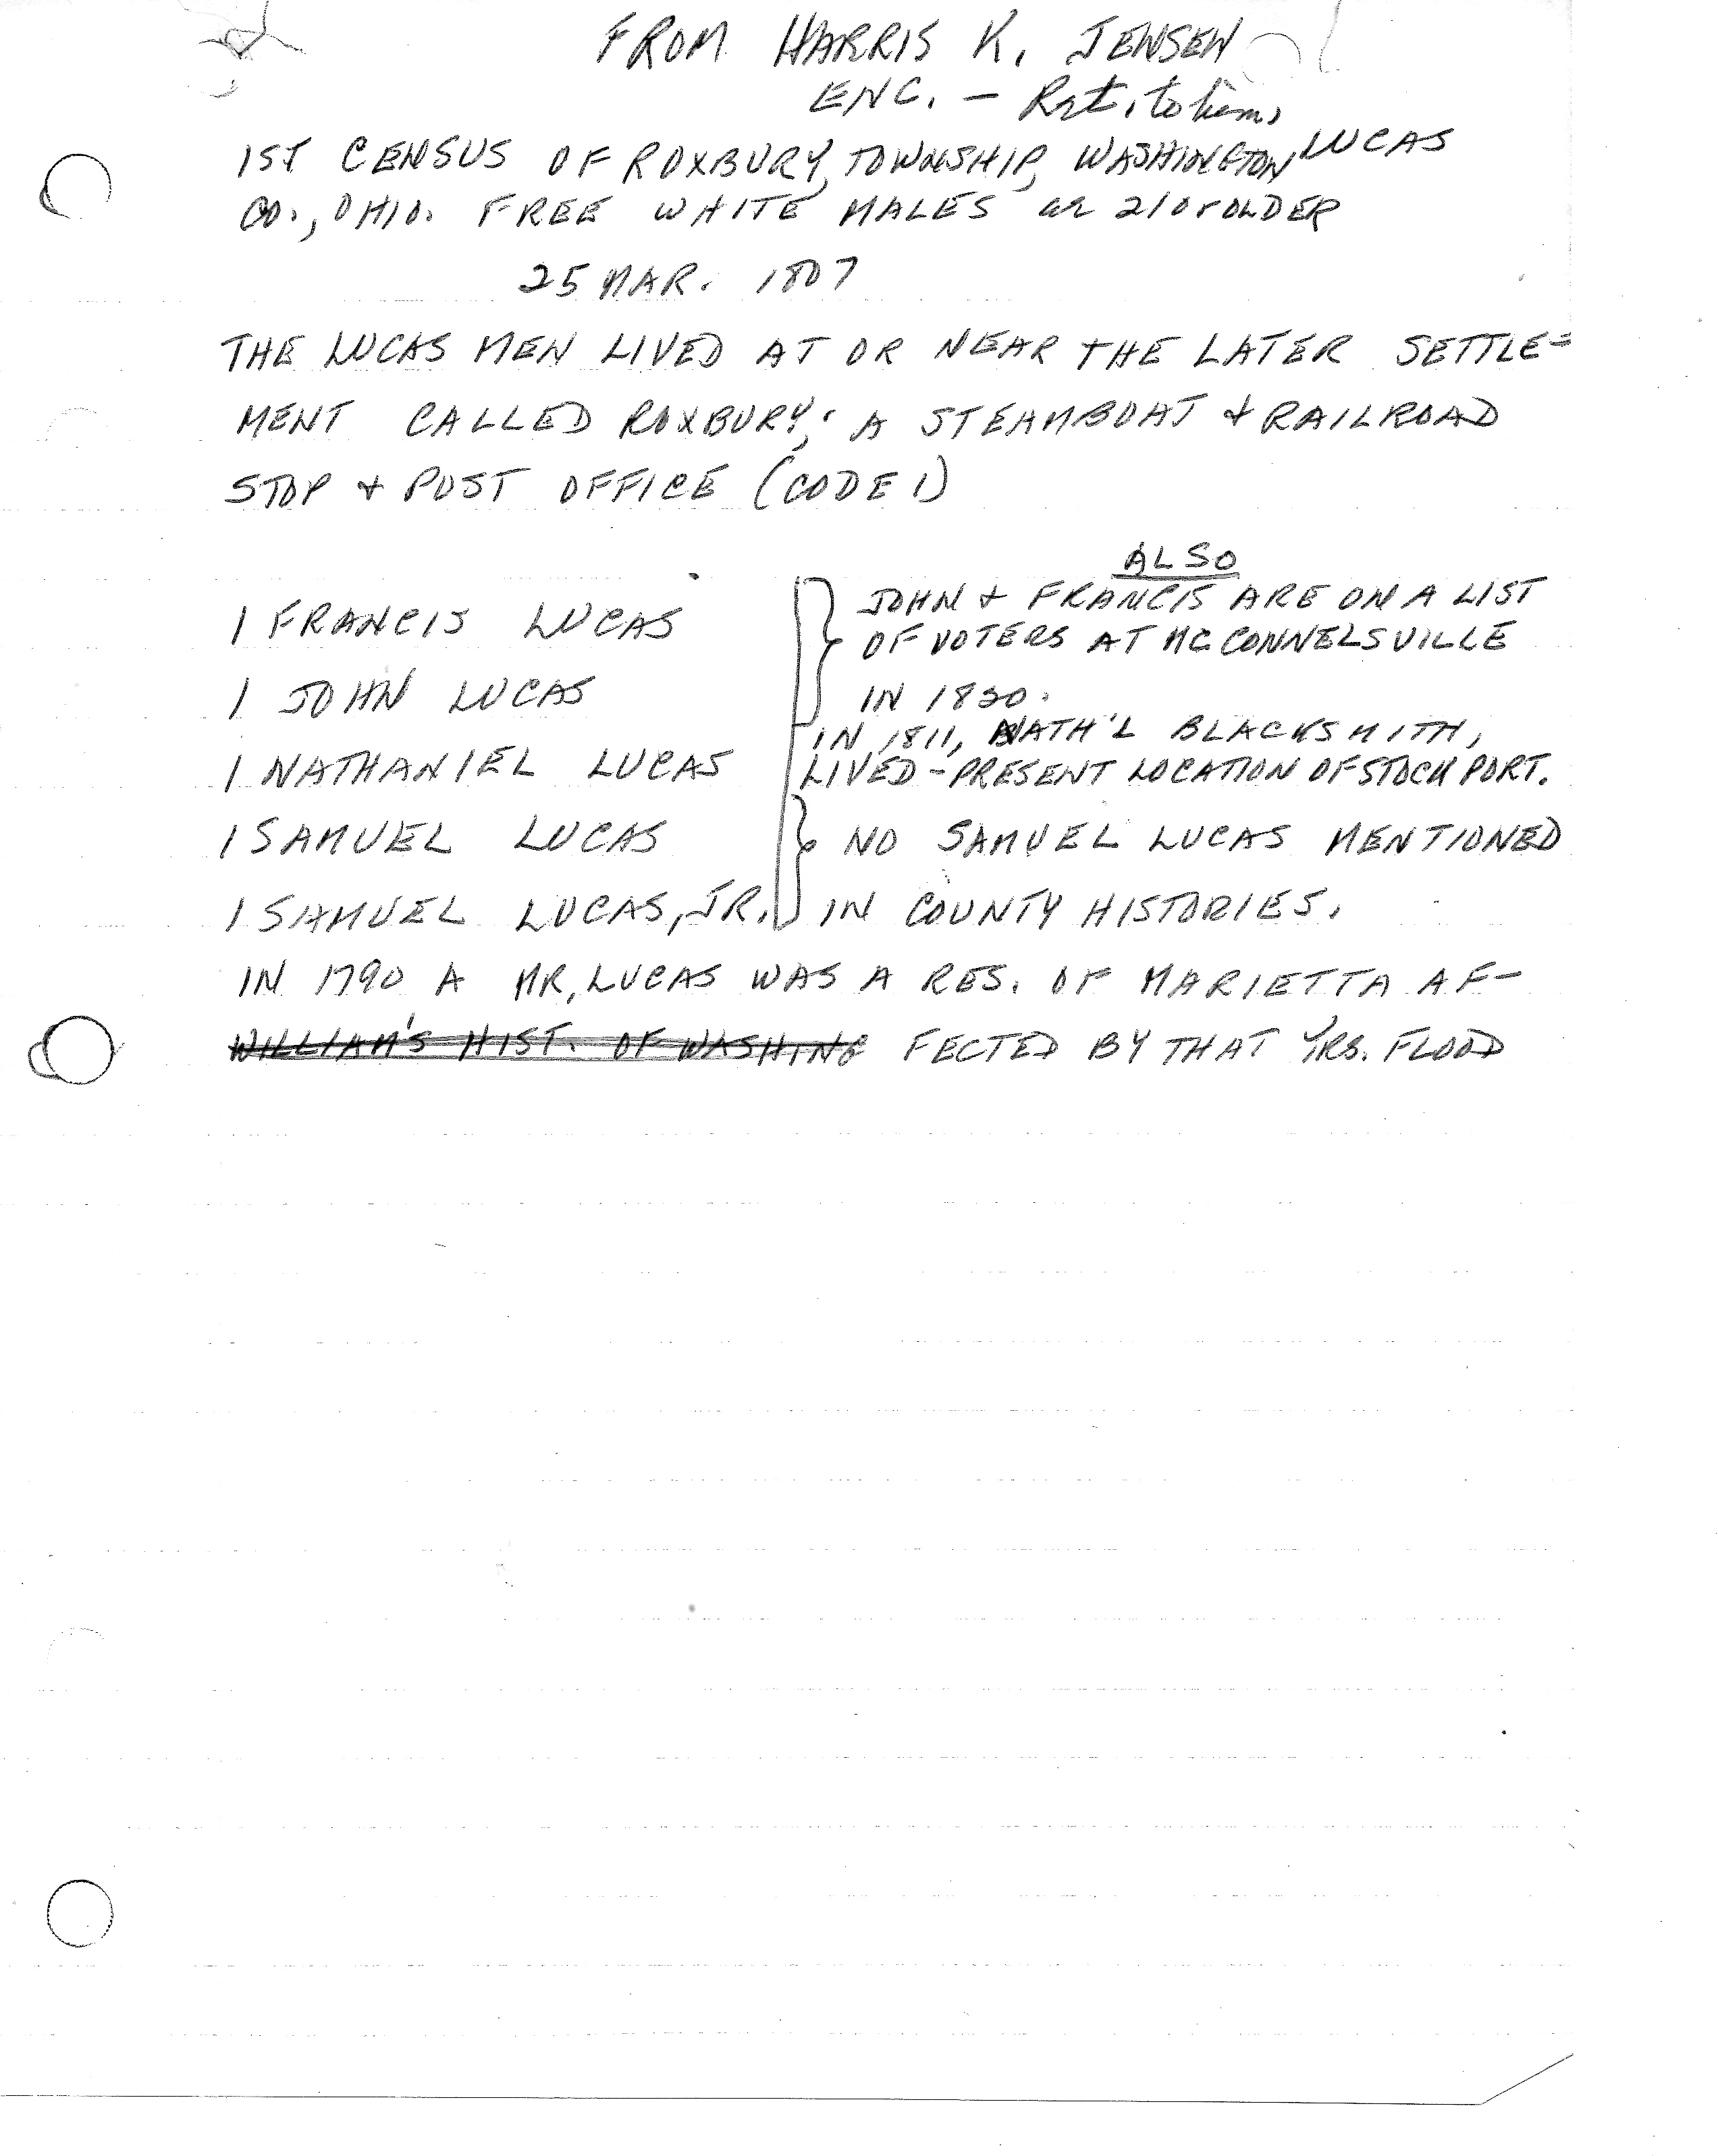 FROM HARRIS K. JENSEN
ENC. — Ret. to him.
LUCAS
1ST CENSUS OF ROXBURY, TOWNSHIP, WASHINGTON
CO., OHIO. FREE WHITE MALES 21 or OLDER
25 MAR. 1807
THE LUCAS MEN LIVED AT OR NEAR THE LATER SETTLE=
MENT CALLED ROXBURY; A STEAMBOAT & RAILROAD
STOP & POST OFFICE (CODE 1)
ALSO
1 FRANCIS LUCAS
1 JOHN LUCAS
JOHN & FRANCIS ARE ON A LIST
OF VOTERS AT MC CONNELSVILLE
IN 1820.
1 NATHANIEL LUCAS
IN 1811, NATH'L BLACKSMITH,
LIVED - PRESENT LOCATION OF STOCKPORT.
1 SAMUEL LUCAS
1 SAMUEL LUCAS, JR.
NO SAMUEL LUCAS MENTIONED
IN COUNTY HISTORIES.
IN 1790 A MR. LUCAS WAS A RES. OF MARIETTA AF-
WILLIAM'S HIST. OF WASHING FECTED BY THAT YRS. FLOOD